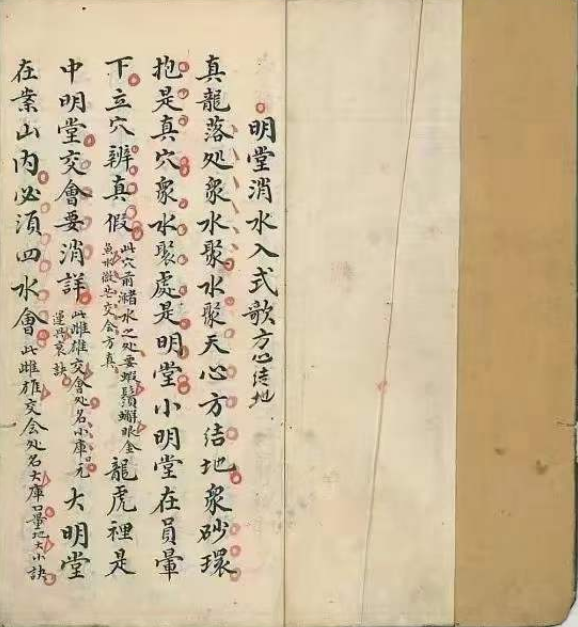 明堂消水入式歌方心结地
真龍落处衆水聚水聚天心方结地衆砂環
抱是真穴衆水聚處是明堂小明堂在員暈
下立穴辨真假此穴前潴水之处要蝦鬚蠏眼金魚水微茫交会方真龍虎裡是
中明堂交會要消詳此雌雄交會处名小庫口元運興衰訣大明堂
在案山內必須四水會此雌雄交会处名大庫口量地大小訣